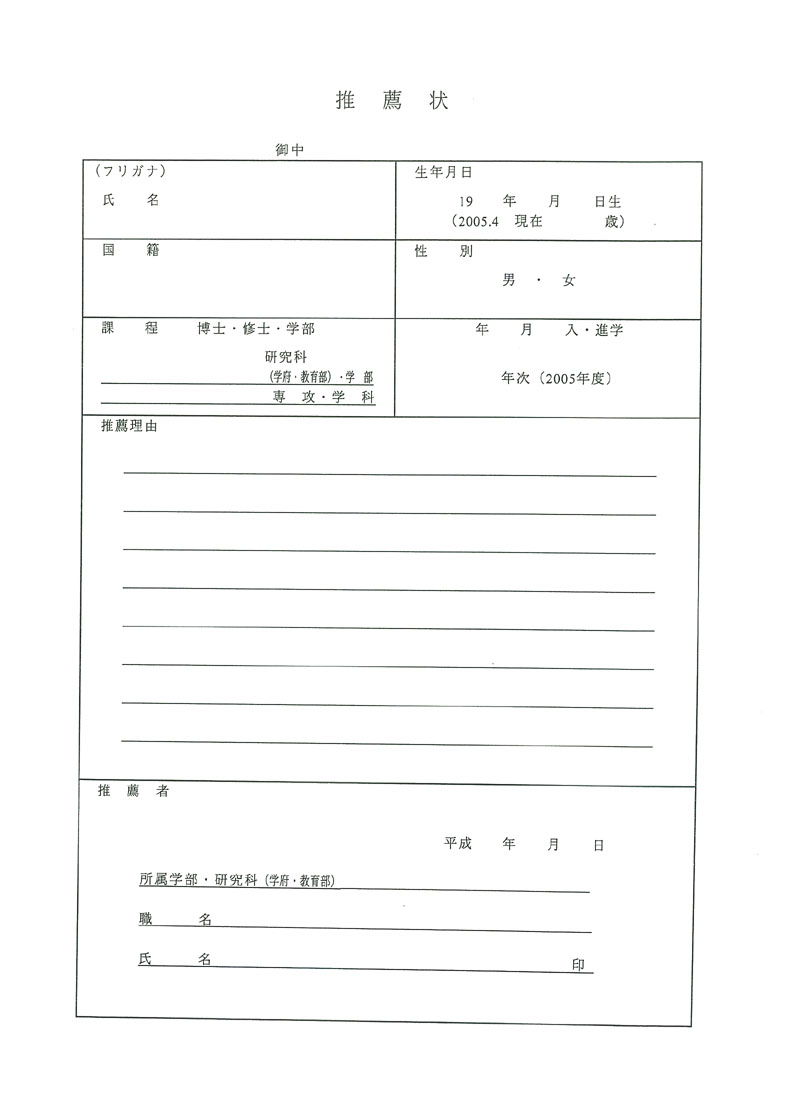 推　薦　状
御中
（フリガナ）
氏　　名
生年月日
19　　年　　月　　日生
（2005.4　現在　　　　歳）
国　　籍
性　　別
男　・　女
課　　程　　博士・修士・学部
研究科
（学府・教育部）・学　部
専　攻・学　科
年　　月　　入・進学
年次（2005年度）
推薦理由
推　薦　者
平成　　年　　月　　日
所属学部・研究科（学府・教育部）
職　　　名
氏　　　名　　　　　　　　　　　　印